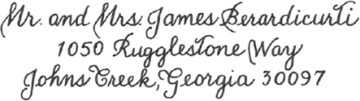 Mr. and Mrs. James Berardicurti
1050 Rugglestone Way
Johns Creek, Georgia 30097